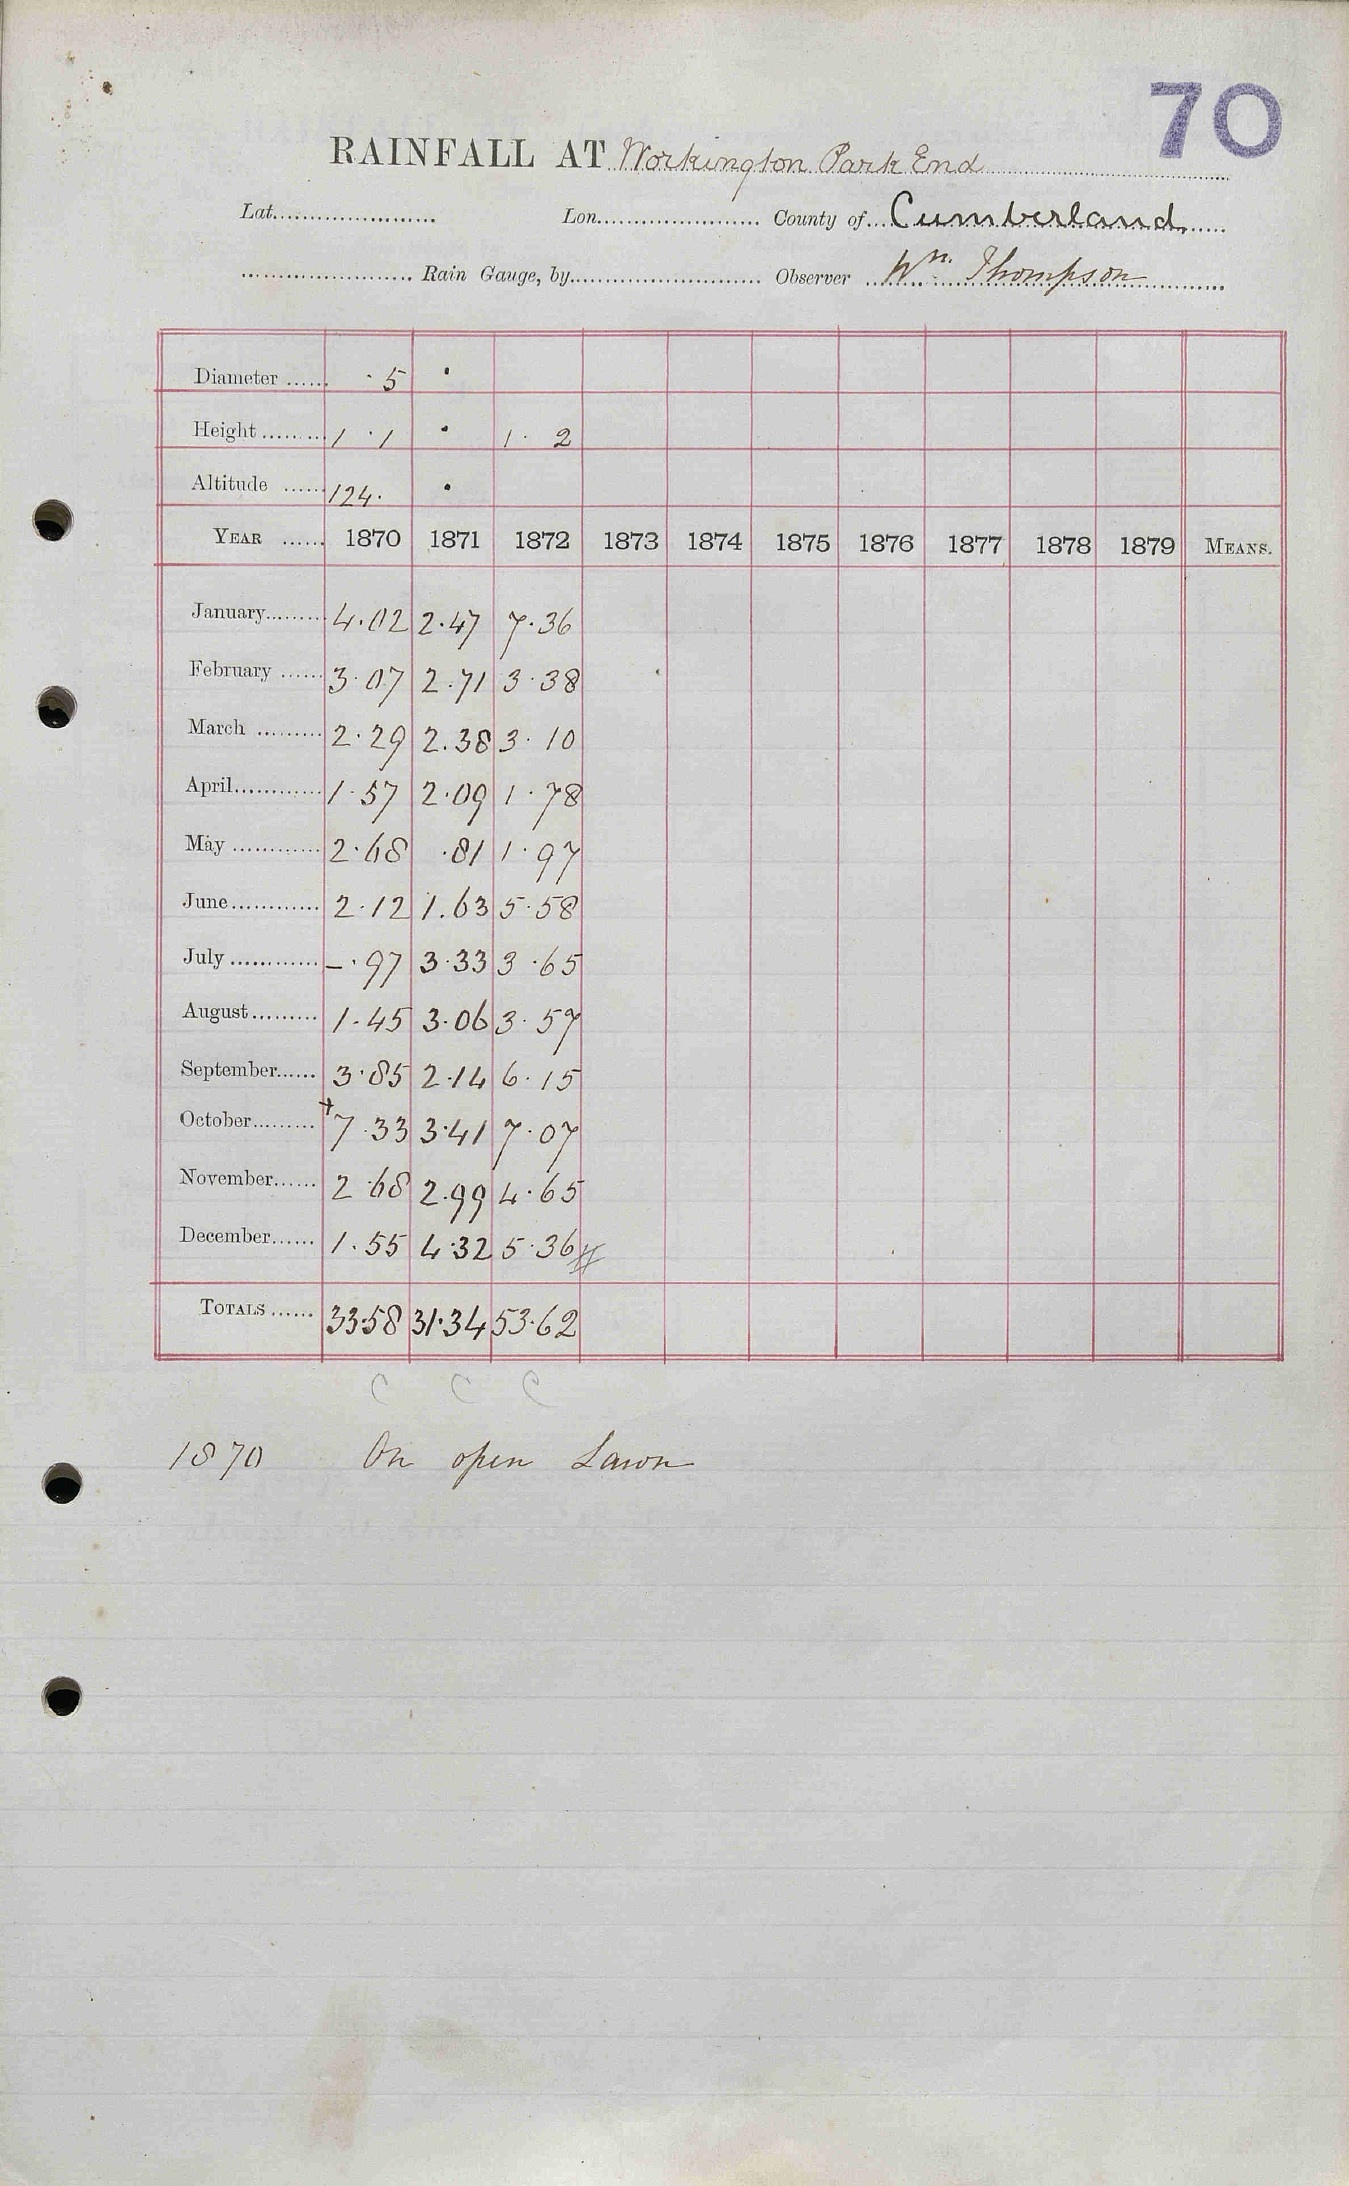 70
RAINFALL AT Workington Park End
Lat. Lon. County of Cumberland
Rain Gauge, by Observer Wm. Thompson
Diameter · 5 ·
Height 1 · 1 · 1 · 2
Altitude 124 · ·
YEAR 1870 1871 1872 1873 1874 1875 1876 1877 1878 1879 MEANS.
January 4.02 2.47 7.36
February 3.07 2.71 3.38
March 2.29 2.38 3.10
April 1.57 2.09 1.78
May 2.68 .81 1.97
June 2.12 1.63 5.58
July –.97 3.33 3.65
August 1.45 3.06 3.57
September 3.85 2.14 6.15
October +7.33 3.41 7.07
November 2.68 2.99 4.65
December 1.55 4.32 5.36 #
TOTALS 33.58 31.34 53.62
C C C
1870 On open Lawn